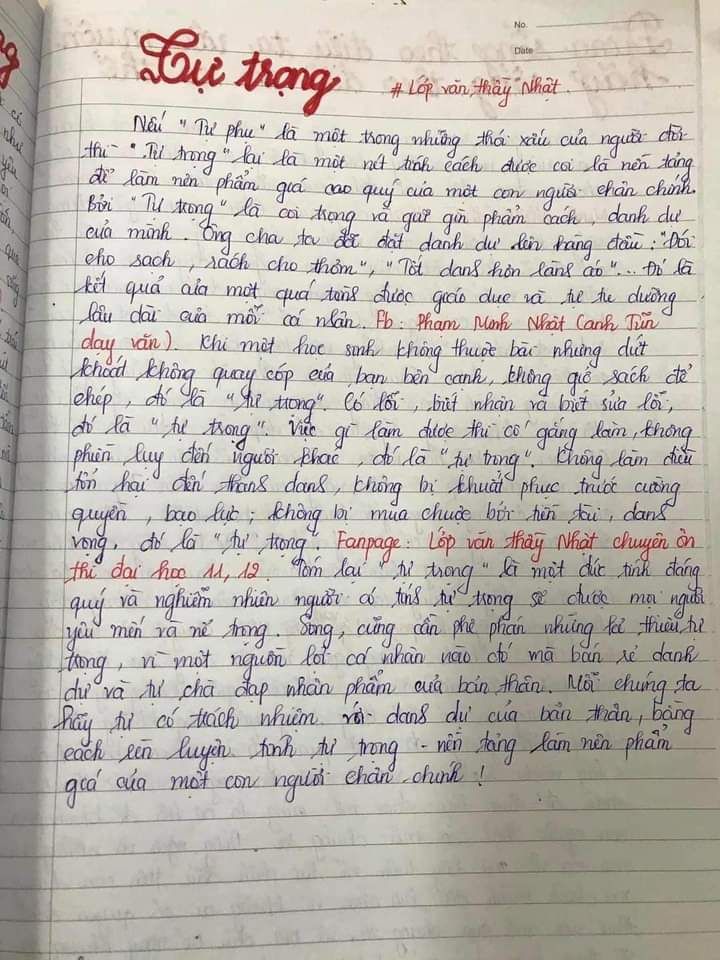 No.
Date
Tự trọng
# Lớp văn thầy Nhật.
Nếu "Tự phụ" là một trong những thói xấu của người đời
thì "Tự trọng" lại là một nét tính cách được coi là nền tảng
để làm nên phẩm giá cao quý của một con người chân chính.
Bởi "Tự trọng" là coi trọng và giữ gìn phẩm cách, danh dự
của mình. Ông cha ta đã đặt danh dự lên hàng đầu: "Đói
cho sạch, rách cho thơm", "Tốt danh hơn lành áo"... Đó là
kết quả của một quá trình được giáo dục và tự tu dưỡng
lâu dài của mỗi cá nhân. Fb: Phạm Minh Nhật (Anh Jin
dạy văn). Khi một học sinh không thuộc bài nhưng dứt
khoát không quay cóp của bạn bên cạnh, không giở sách để
chép, đó là "tự trọng". Có lỗi, biết nhận và biết sửa lỗi,
đó là "tự trọng". Việc gì làm được thì cố gắng làm, không
phiền lụy đến người khác, đó là "tự trọng". Không làm điều
tổn hại đến thanh danh, không bị khuất phục trước cường
quyền, bạo lực; không bị mua chuộc bởi tiền tài, danh
vọng, đó là "tự trọng". Fanpage: Lớp văn thầy Nhật chuyên ôn
thi đại học 11, 12. Tóm lại "tự trọng" là một đức tính đáng
quý và nghiễm nhiên người có tính tự trọng sẽ được mọi người
yêu mến và nể trọng. Song, cũng cần phê phán những kẻ thiếu tự
trọng, vì một nguồn lợi cá nhân nào đó mà bán rẻ danh
dự và tự chà đạp nhân phẩm của bản thân. Mỗi chúng ta
hãy tự có trách nhiệm với danh dự của bản thân, bằng
cách rèn luyện tính tự trọng - nền tảng làm nên phẩm
giá của một con người chân chính!